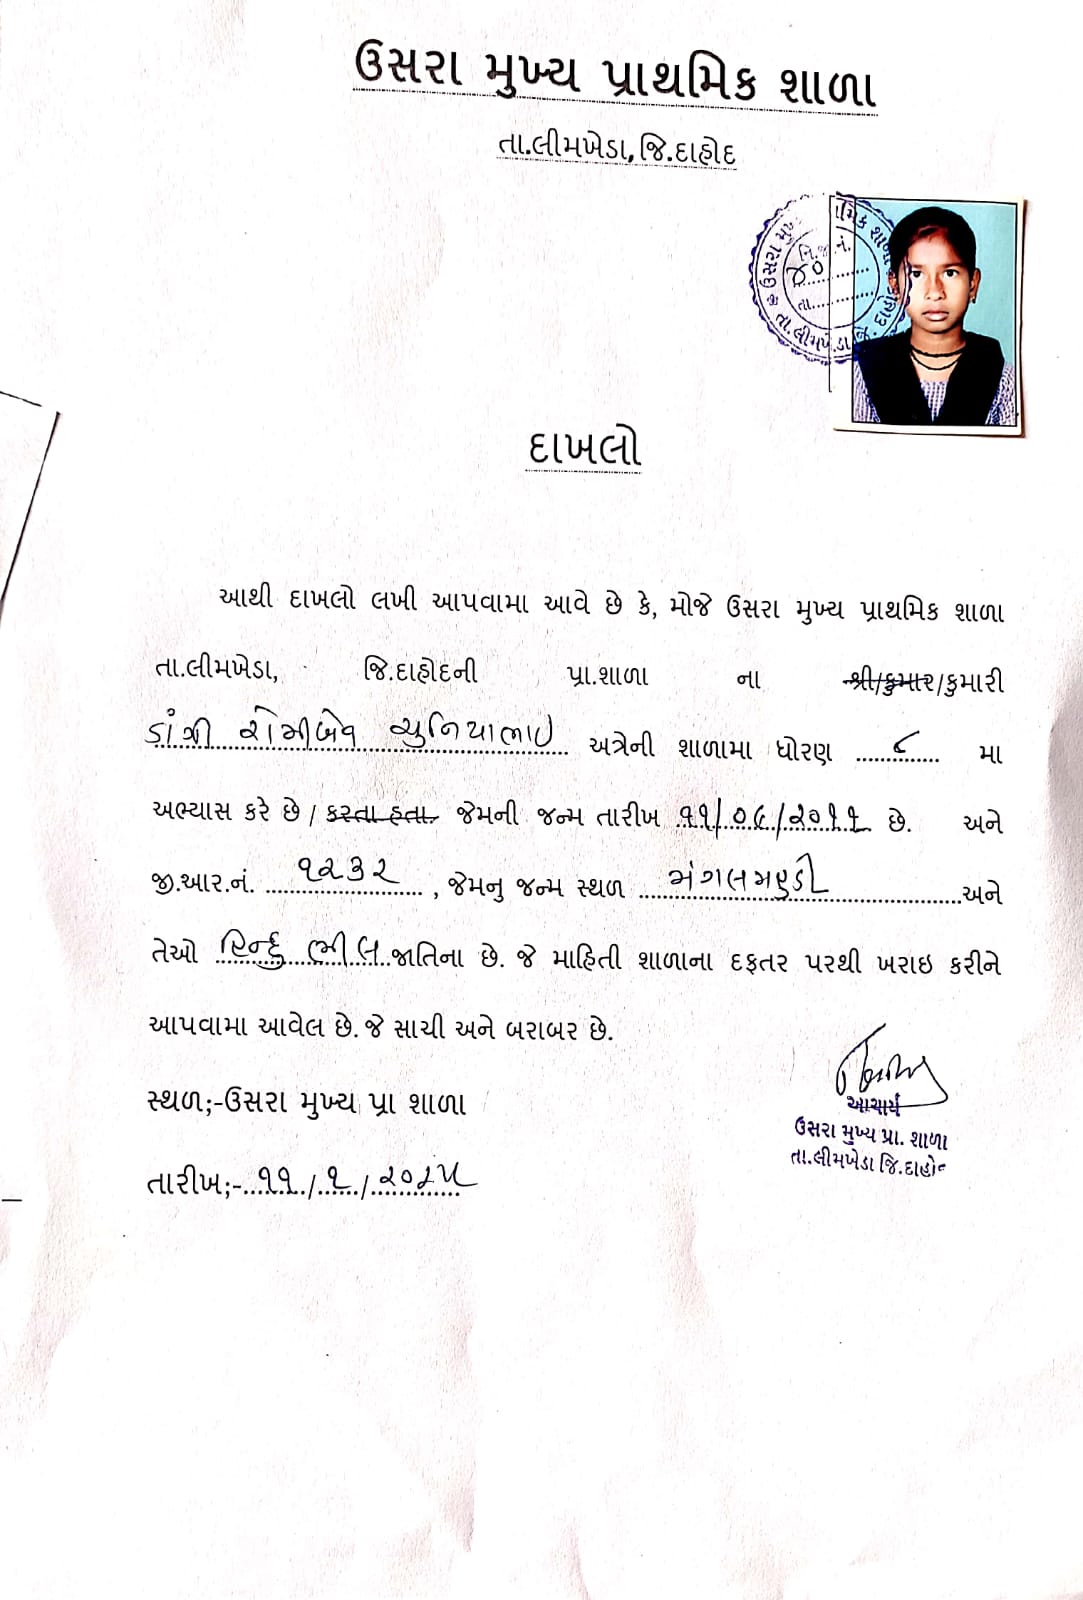 ઉસરા મુખ્ય પ્રાથમિક શાળા
તા.લીમખેડા, જિ.દાહોદ
ઉસરા મુ ામિક શાળા
નિ.જા.નં.
૪૦
તા.
તા.લીમખેડા જિ. દાહો
દાખલો
આથી દાખલો લખી આપવામા આવે છે કે, મોજે ઉસરા મુખ્ય પ્રાથમિક શાળા
તા.લીમખેડા, જિ.દાહોદની પ્રા.શાળા ના શ્રી/કુમાર/કુમારી
ડાંગી રોમીબેન ચુનિયાભાઇ અત્રેની શાળામા ધોરણ ૮ મા
અભ્યાસ કરે છે / કરતા હતા. જેમની જન્મ તારીખ ૧૧/૦૬/૨૦૧૧ છે. અને
જી.આર.નં. ૧૨૩૨ , જેમનુ જન્મ સ્થળ મંગલમહુડી અને
તેઓ હિન્દુ ભીલ જાતિના છે. જે માહિતી શાળાના દફતર પરથી ખરાઇ કરીને
આપવામા આવેલ છે. જે સાચી અને બરાબર છે.
સ્થળ;-ઉસરા મુખ્ય પ્રા શાળા
આચાર્ય
ઉસરા મુખ્ય પ્રા. શાળા
તા.લીમખેડા જિ.દાહોદ
તારીખ;-૧૧/૧/૨૦૨૫